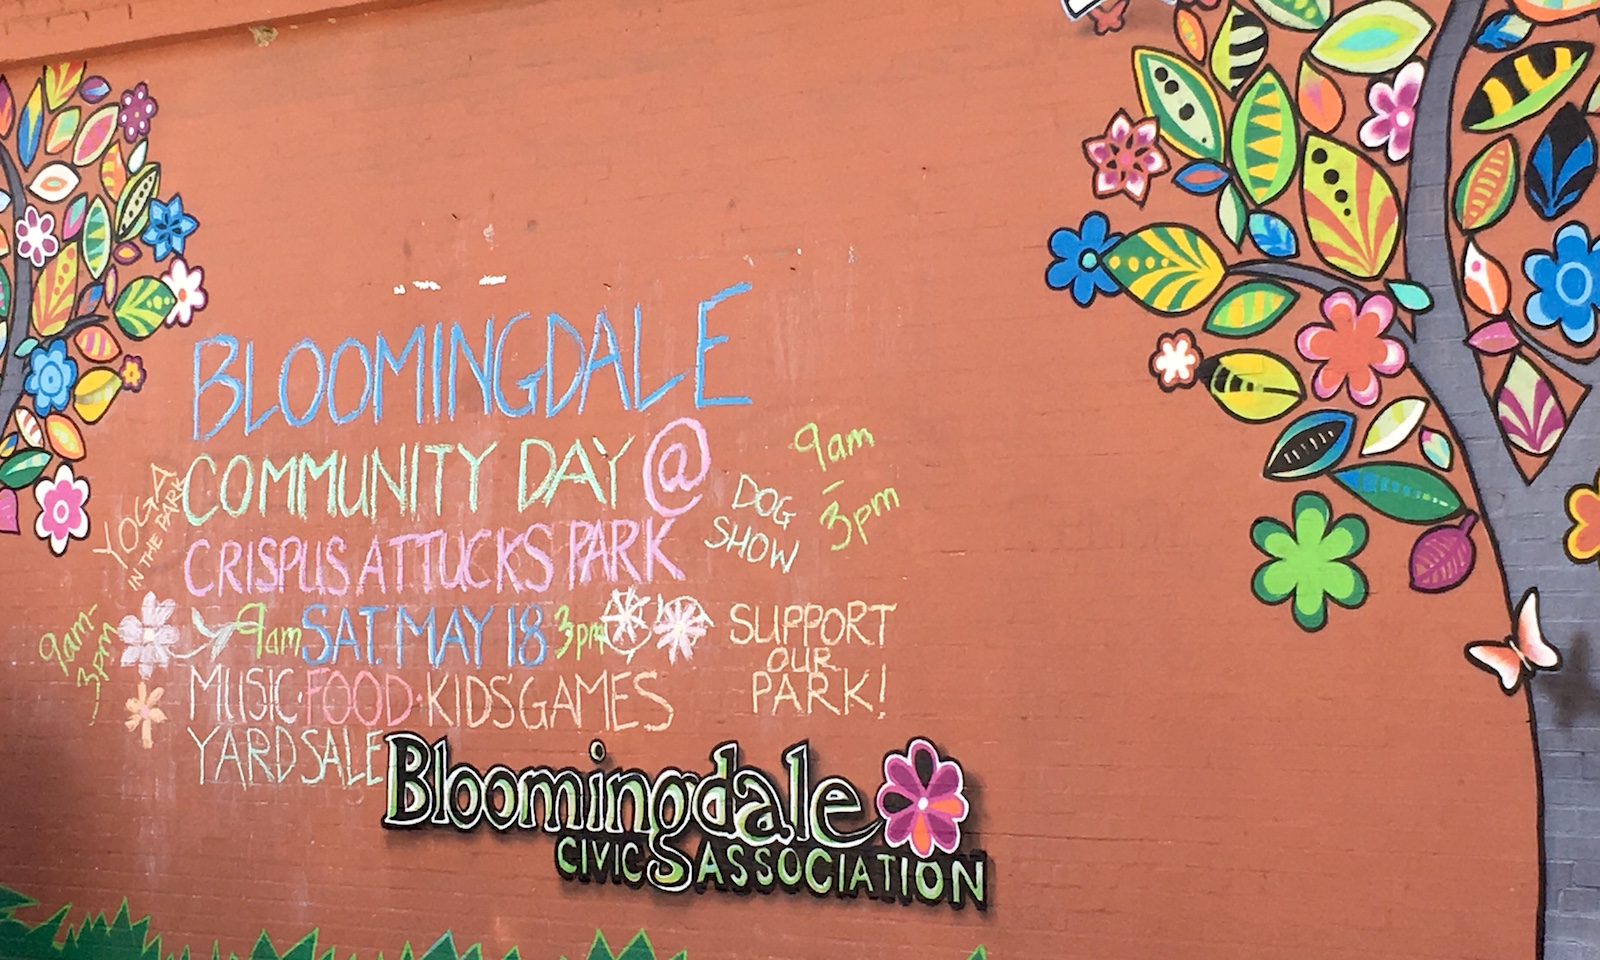 BLOOMINGDALE
COMMUNITY DAY @
CRISPUS ATTUCKS PARK
9am SAT. MAY 18 3pm
MUSIC·FOOD·KIDS'GAMES
YARD SALE
YOGA
IN THE PARK
9am-
3pm
DOG
SHOW
9am
-
3pm
SUPPORT
OUR
PARK!
Bloomingdale
CIVIC ASSOCIATION